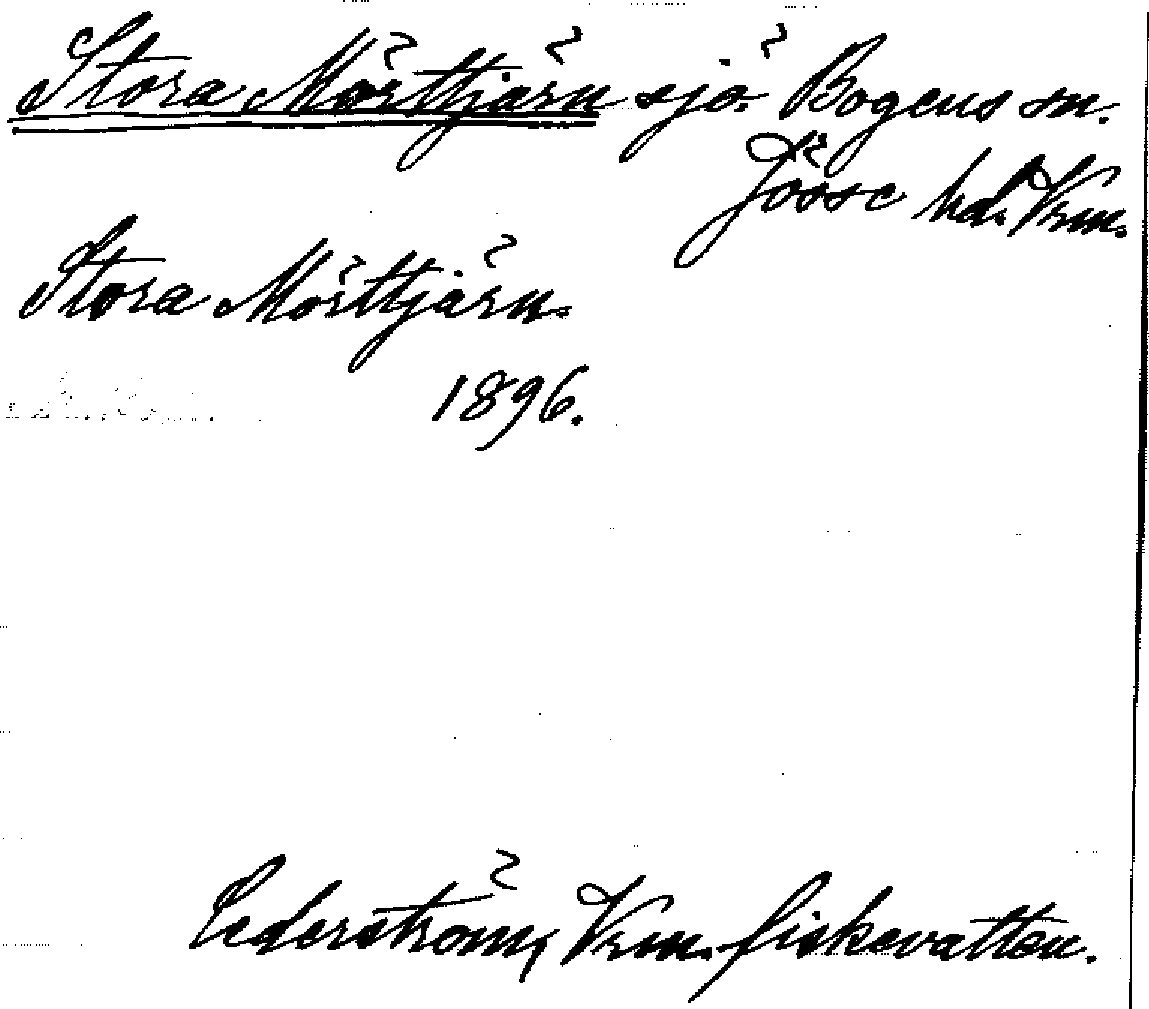 Stora Mörttjärn sjö. Bogens sn.
Jösse hd. Vrm.
Stora Mörttjärn.
1896.
Cederström, Vrm. fiskevatten.